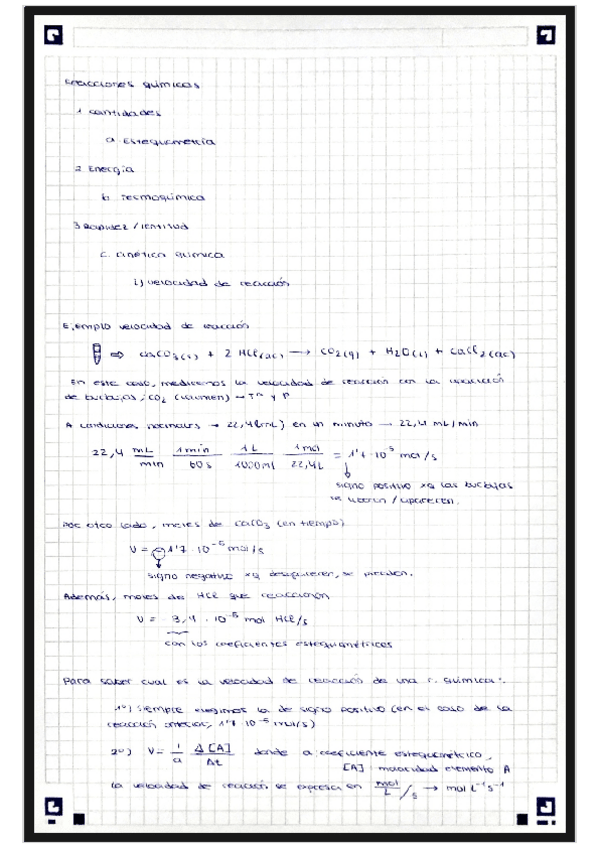 Reacciones químicas
1 cantidades
a. Estequiometría
2. Energía
b. Termoquímica
3. Rapidez / lentitud
c. cinética química
i) velocidad de reacción
Ejemplo velocidad de reacción
⇒ CaCO3(s) + 2 HCl(ac) → CO2(g) + H2O(l) + CaCl2(ac)
En este caso, mediremos la velocidad de reacción con la aparición
de burbujas; CO2 (volumen) → Tª y P
A condiciones normales → 22,4 (mL) en un minuto → 22,4 mL/min
22,4 mL/min · 1 min/60 s · 1 L/1000 ml · 1 mol/22,4 L = 1'7 · 10^-5 mol/s
signo positivo xq las burbujas
se liberan / aparecen.
Por otro lado, moles de CaCO3 (en tiempo)
V = - 1'7 · 10^-5 mol/s
signo negativo xq desaparecen, se pierden.
Además, moles de HCl que reaccionan
V = - 3,4 · 10^-5 mol HCl/s
con los coeficientes estequiométricos
Para saber cual es la velocidad de reacción de una r. química:
1º) siempre elegimos la de signo positivo (en el caso de la
reacción anterior, 1'7 · 10^-5 mol/s)
2º) V = 1/a Δ[A]/Δt donde a: coeficiente estequiométrico,
[A]: molaridad elemento A
la velocidad de reacción se expresa en mol/L /s → mol L^-1 s^-1